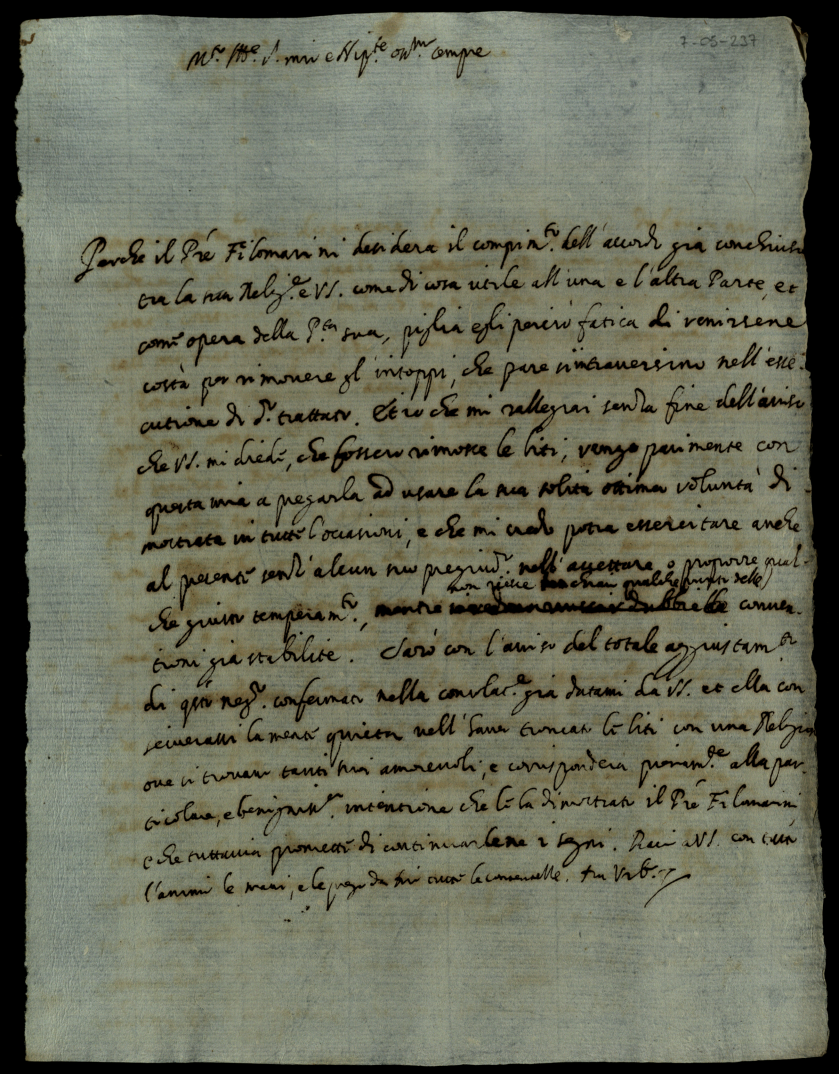 7-05-237
M.to Ill.e S. mio e Nip.te oss.mo sempre
Perche il Prē Filomarini desidera il compim.to dell'accordo già conchiuso
tra la sua Relig.e e VS. come di cosa utile all'una e l'altra Parte, et
come opera della P.tà sua, piglia egli perciò fatica di venirsene
costà per rimovere gl'intoppi, che pare s'intraversino nell'esse-
cutione di d.o trattato. Et io che mi rallegrai senza fine dell'aviso
che VS. mi diede, che fossero rimosse le liti, vengo parimente con
questa mia a pregarla ad usare la sua solita ottima voluntà di-
mostrata in tutte l'occasioni, e che mi credo potrà essercitare anche
al presente senz'alcun suo pregiud.o nell'assettare, o proporre qual-
non esce qualche punto delle
che giusto temperam.to, mentre conven-
tioni già stabilite. Sarò con l'aviso del totale aggiustam.to
di q.sto neg.o confermato nella consolac.e già datami da VS. et ella con-
serverassi la mente quieta nell'haver troncato le liti con una Religion
ove si trovano tanti suoi amorevoli, e corrisponderà pienam.e alla par-
ticolare, e benigniss.a intentione che le ha dimostrato il Prē Filomarini,
e che tuttavia promette di continuarlene i segni. Bacio a VS. con tutto
l'animo le mani, e le prego da Dio tutte le contentezze.